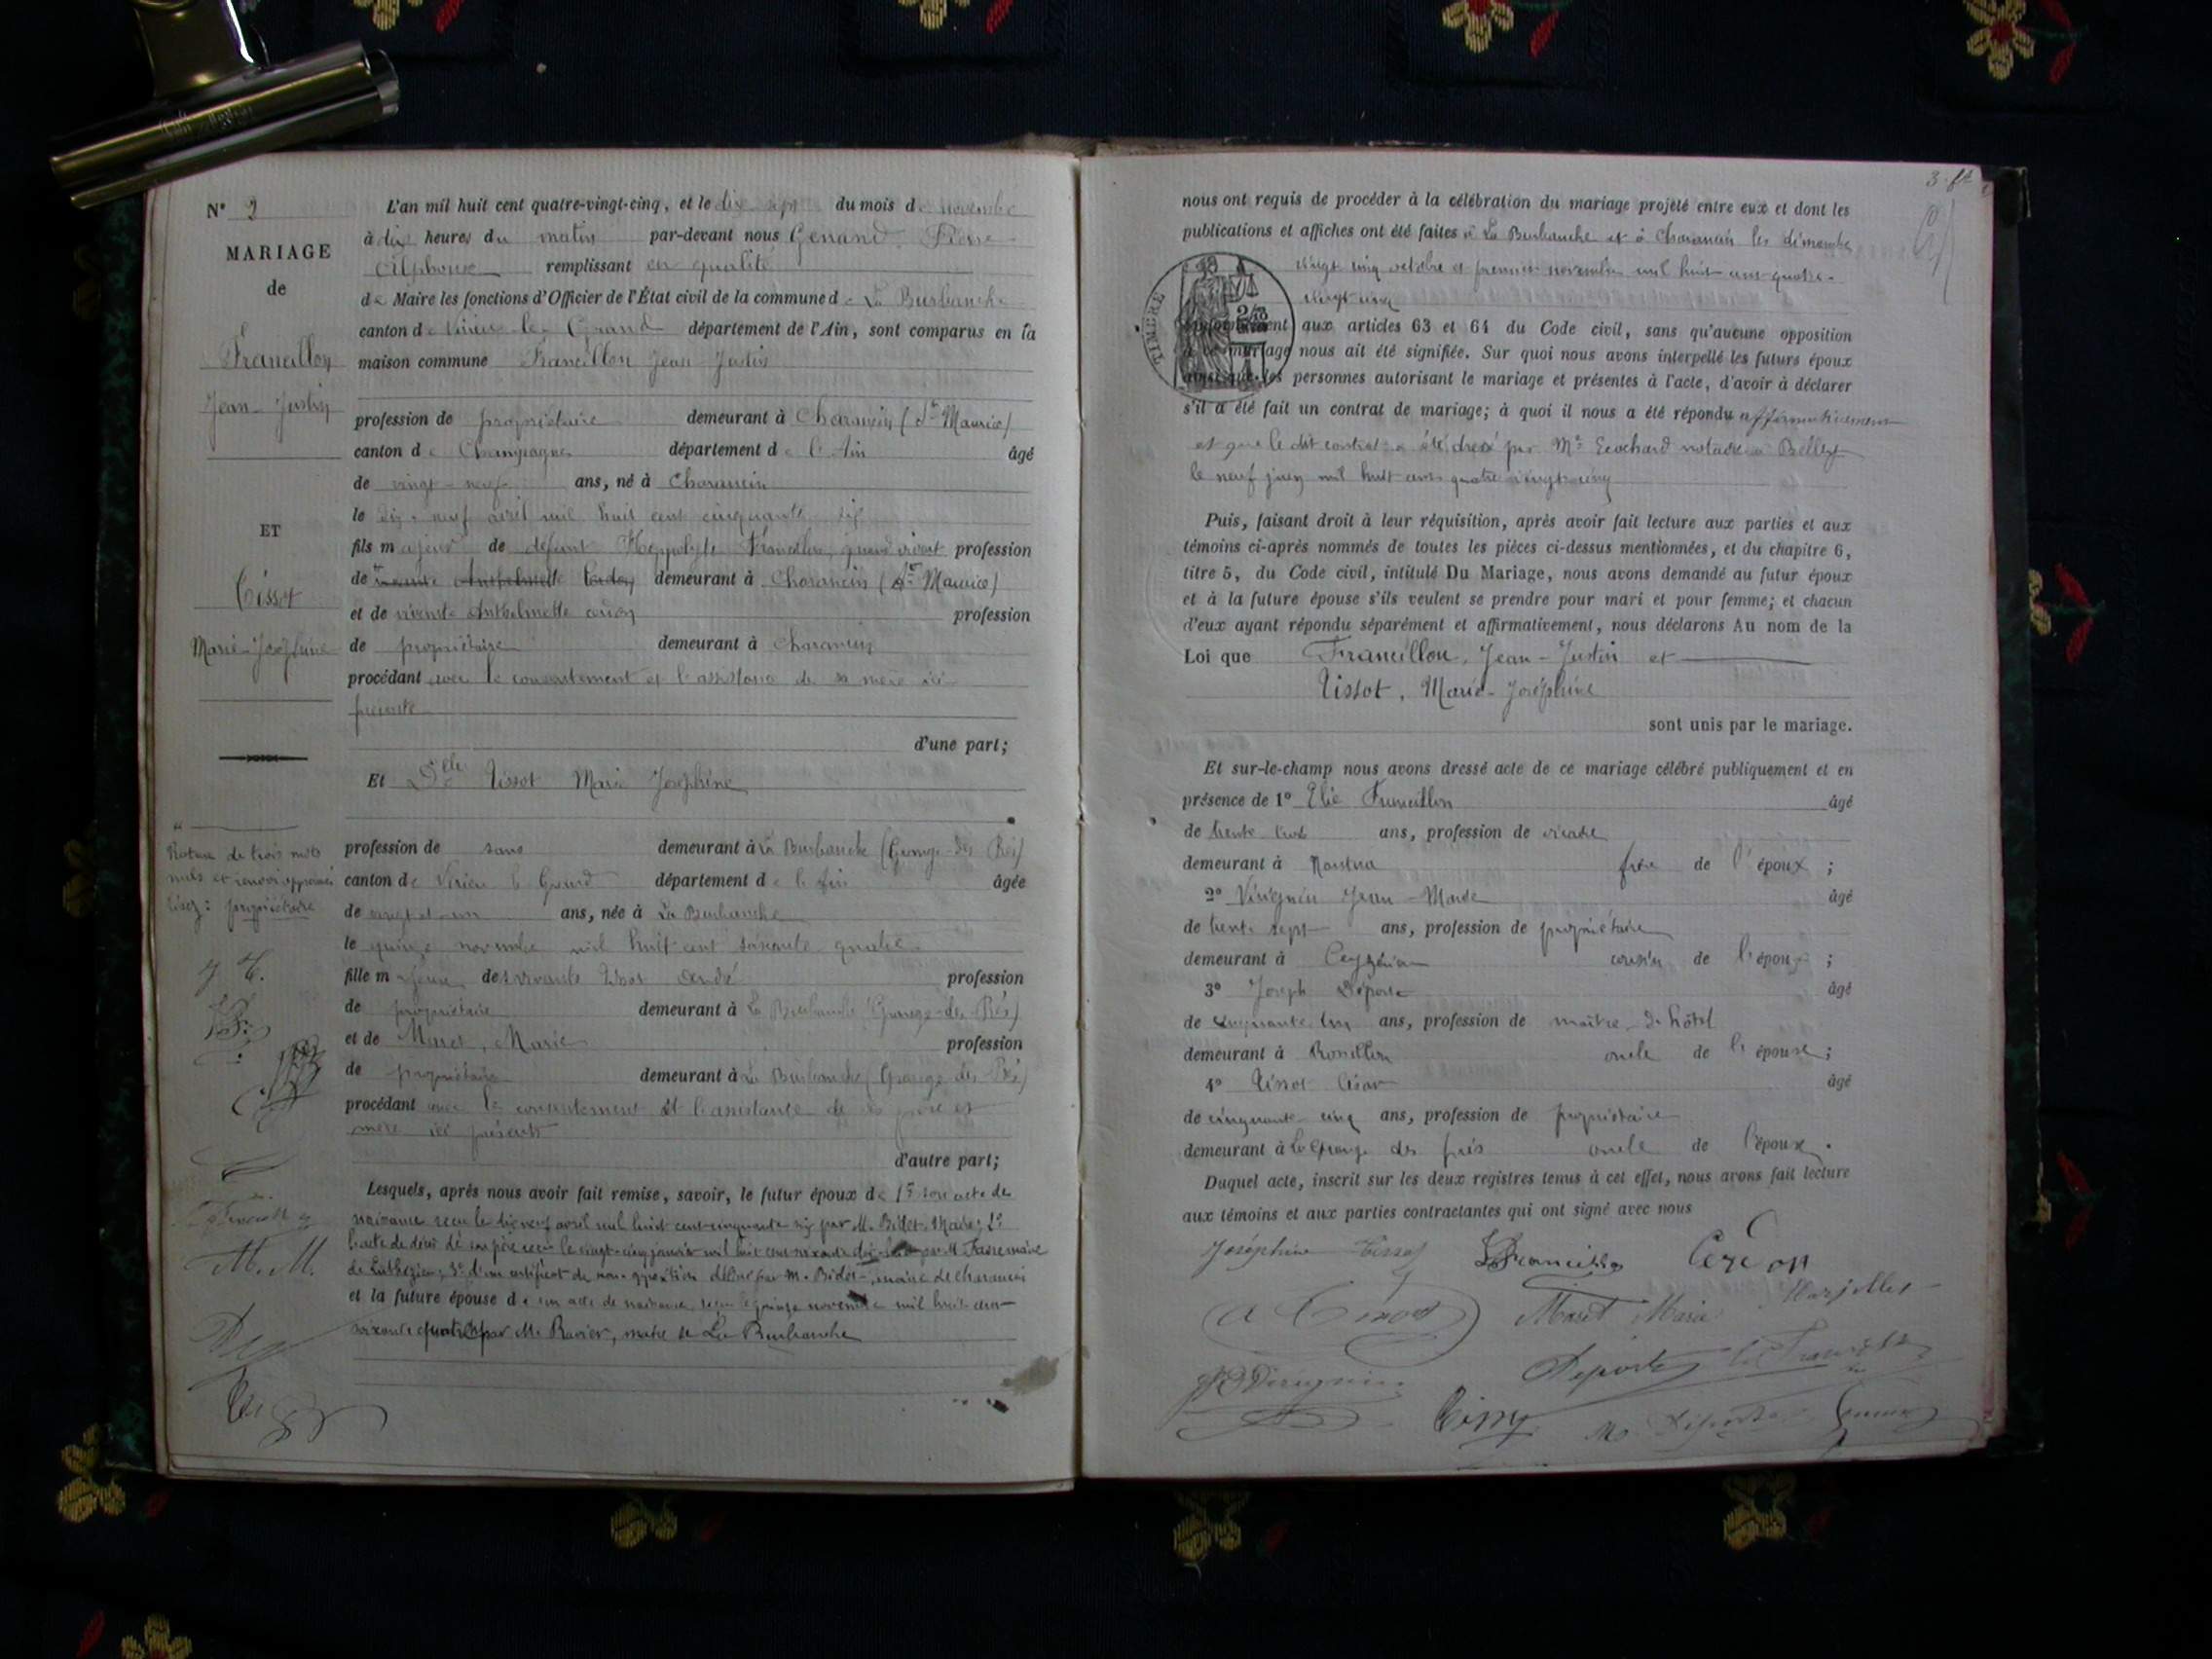 N° 2
MARIAGE
de
Francillon
Jean-Justin
ET
Tissot
Marie-Joséphine
Rature de trois mots
nuls et renvoi approuvé
lisez: propriétaire
M. M.
L'an mil huit cent quatre-vingt-cinq, et le dix sept du mois de novembre
à dix heures du matin par-devant nous Genand Pierre
Alphonse remplissant en qualité
de Maire les fonctions d'Officier de l'État civil de la commune de La Burbanche
canton de Virieu-le-Grand département de l'Ain, sont comparus en la
maison commune Francillon Jean Justin
profession de propriétaire demeurant à Charancin (St Maurice)
canton de Champagne département de l'Ain âgé
de vingt-neuf ans, né à Charancin
le dix-neuf avril mil huit cent cinquante six
fils majeur de défunt Hyppolyte Francillon, quand vivait profession
de demeurant à Charancin (St Maurice)
et de vivante Anthelmette profession
de propriétaire demeurant à Charancin
procédant avec le consentement et l'assistance de sa mère ici
présente
d'une part;
Et Delle Tissot Marie Joséphine
profession de sans demeurant à La Burbanche (Grange-des Prés)
canton de Virieu le Grand département de l'Ain âgée
de vingt et un ans, née à La Burbanche
le quinze novembre mil huit cent soixante quatre
fille majeure de vivante Tissot profession
de propriétaire demeurant à La Burbanche (Grange-des Prés)
et de Maret, Marie profession
de propriétaire demeurant à La Burbanche (Grange des Prés)
procédant avec le consentement et l'assistance de ses père et
mère ici présents
d'autre part;
Lesquels, après nous avoir fait remise, savoir, le futur époux de 1° son acte de
naissance reçu le dix neuf avril mil huit cent cinquante six par M. Bidot, Maire; 2°
l'acte de décès de son père reçu le vingt-cinq janvier mil huit cent soixante dix par M. Favre maire
de Luthézieu; 3° d'un certificat de non-opposition délivré par M. Bidot, maire de Charancin
et la future épouse de son acte de naissance reçu le quinze novembre mil huit cent
soixante quatre par M. Ravier, maire de La Burbanche
nous ont requis de procéder à la célébration du mariage projeté entre eux et dont les
publications et affiches ont été faites à La Burbanche et à Charancin les dimanche
vingt cinq octobre et premier novembre mil huit cent quatre-
vingt cinq
TIMBRE
conformément aux articles 63 et 64 du Code civil, sans qu'aucune opposition
à ce mariage nous ait été signifiée. Sur quoi nous avons interpellé les futurs époux
ainsi que les personnes autorisant le mariage et présentes à l'acte, d'avoir à déclarer
s'il a été fait un contrat de mariage; à quoi il nous a été répondu affirmativement
et que le dit contrat a été dressé par Me Ecochard notaire à Belley
le neuf juin mil huit cent quatre vingt-cinq
Puis, faisant droit à leur réquisition, après avoir fait lecture aux parties et aux
témoins ci-après nommés de toutes les pièces ci-dessus mentionnées, et du chapitre 6,
titre 5, du Code civil, intitulé Du Mariage, nous avons demandé au futur époux
et à la future épouse s'ils veulent se prendre pour mari et pour femme; et chacun
d'eux ayant répondu séparément et affirmativement, nous déclarons Au nom de la
Loi que Francillon, Jean-Justin et
Tissot, Marie-Joséphine
sont unis par le mariage.
Et sur-le-champ nous avons dressé acte de ce mariage célébré publiquement et en
présence de 1° Elie Francillon âgé
de trente trois ans, profession de vicaire
demeurant à Nantua frère de l'époux ;
2° Jean-Marie âgé
de trente sept ans, profession de propriétaire
demeurant à Ceyzérieu cousin de l'époux ;
3° Joseph Déporte âgé
de cinquante ans, profession de maître d'hôtel
demeurant à Rossillon oncle de l'épouse ;
4° Tissot César âgé
de cinquante cinq ans, profession de propriétaire
demeurant à La Grange des prés oncle de l'époux.
Duquel acte, inscrit sur les deux registres tenus à cet effet, nous avons fait lecture
aux témoins et aux parties contractantes qui ont signé avec nous
Joséphine Tissot J Francillon
Maret Marie
Deporte